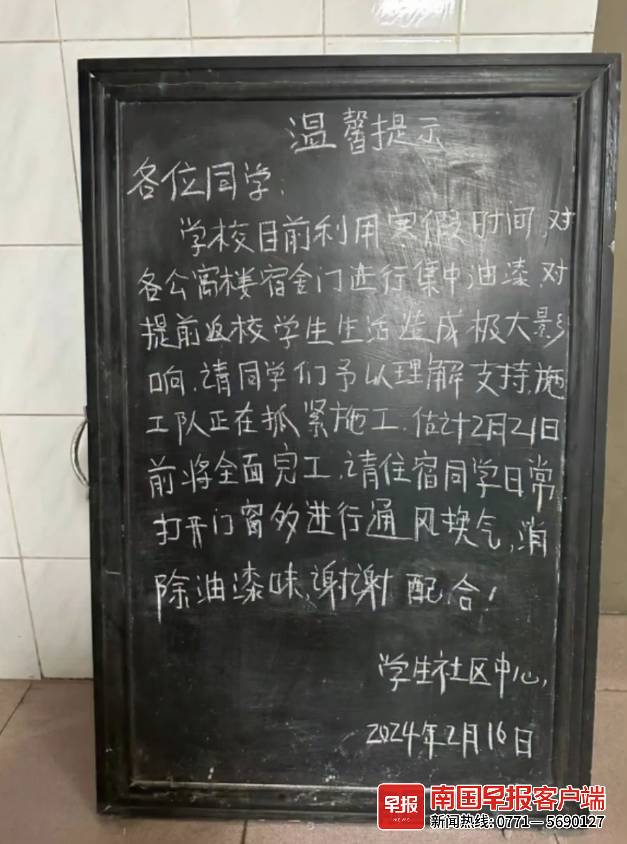 温馨提示
各位同学:
学校目前利用寒假时间,对
各公寓楼宿舍门进行集中油漆,对
提前返校学生生活造成极大影
响,请同学们予以理解支持,施
工队正在抓紧施工,估计2月21日
前将全面完工,请住宿同学日常
打开门窗多进行通风换气,消
除油漆味,谢谢配合!
学生社区中心,
2024年2月16日
早报
NEWS
南国早报客户端
新闻热线:0771—5690127